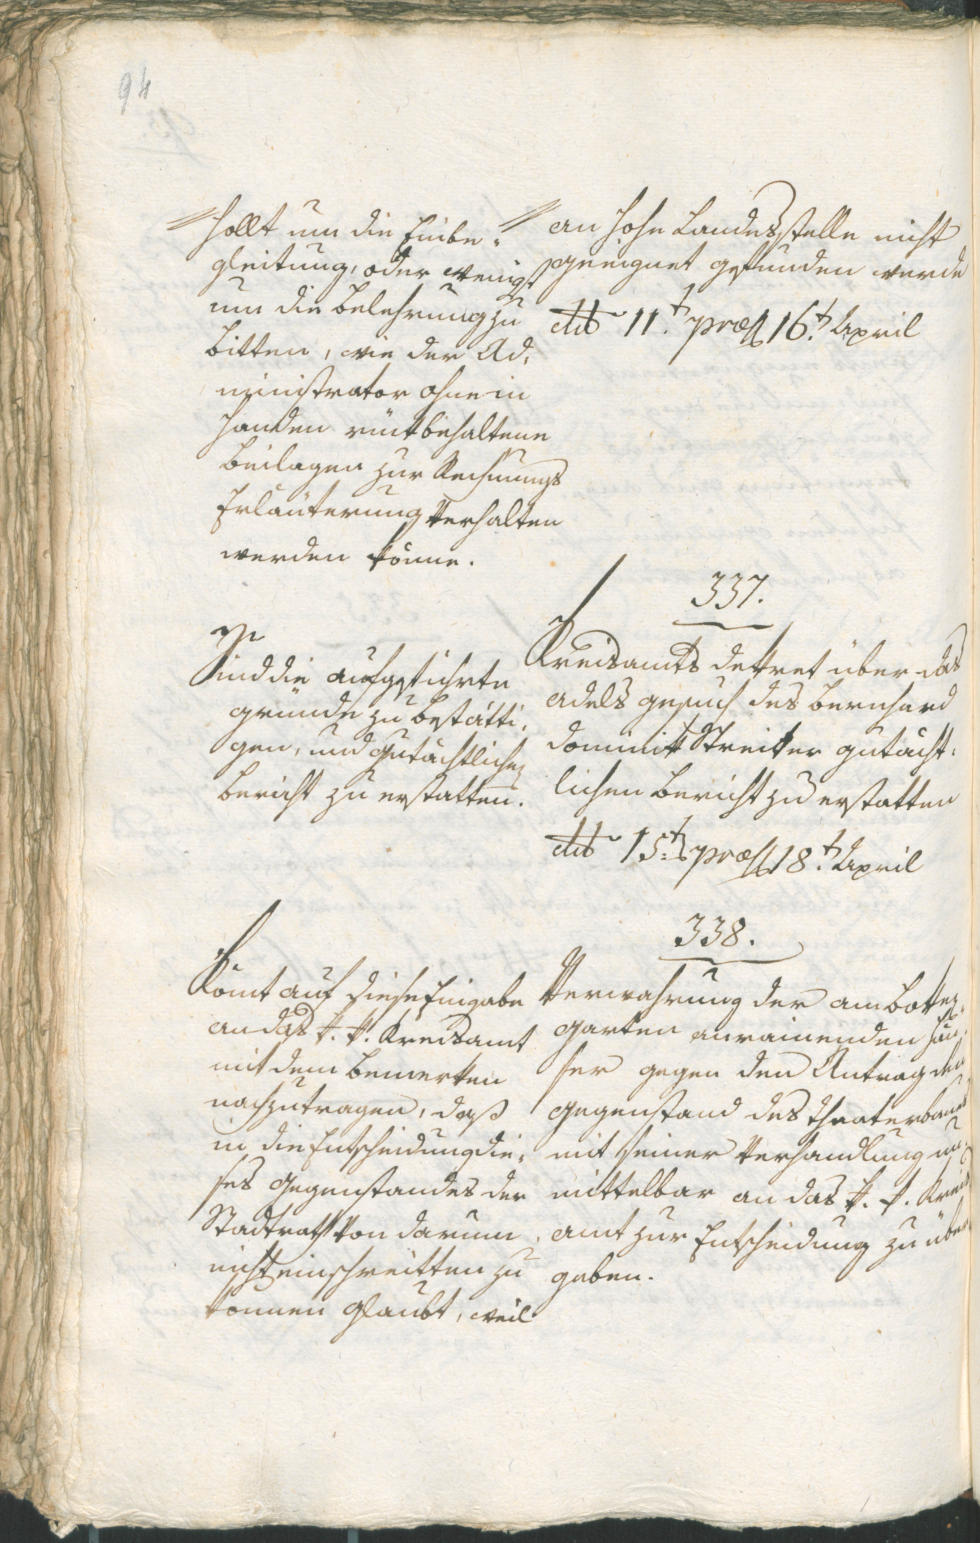 94
hollt um die Einbe-
gleitung, oder wenigst
um die belehrung zu
bitten, wie der Ad-
ministrator ohne in
Handen rückbehaltene
Beilagen zur Rechnungs
Erläuterung verhalten
werden könne.
an hohe Landesstelle nicht
geeignet gefunden werde
dto 11.t præs 16.t April
337.
Sind die aufgeführte
gründe zu bestätti-
gen, und gutächtlichen
bericht zu erstatten.
Kreisamts dekret über das
adels gesuch des Bernhard
Dominik Streiter gutächt-
lichen Bericht zu erstatten
dto 15.t præs 18.t April
338.
Kömt auf diese Eingabe
an das k. k. Kreisamt
mit dem bemerken
nachzutragen, daß
in die Entscheidung die-
ses Gegenstandes der
Stadtrath von darum
nicht einschreitten zu
können glaubt, weil
Verwahrung der am Botzen
garten anrainenden Häu-
ser gegen den Antrag den
Gegenstand des theaterbaues
mit seiner Verhandlung un-
mittelbar an das k. k. Kreis
amt zur Entscheidung zu über
geben.